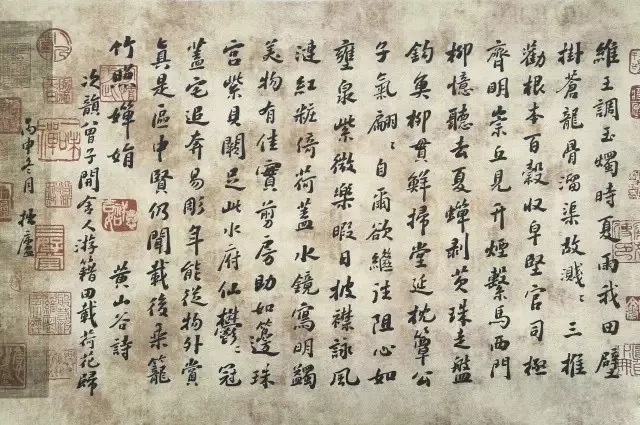 維王調玉燭時夏雨我田壁
掛蒼龍骨溜渠故濺〻三推
勸根本百穀収皁堅官司極
齊明崇丘見升煙繫馬西門
柳憶聽去夏蟬剥芡珠走盤
釣魚柳貫鮮掃堂延枕簟公
子氣翩〻自爾欲繼往阻心如
壅泉紫微樂暇日披襟詠風
漣紅粧倚荷蓋水鏡寫明蠲
美物有佳實剪房助加籩珠
宮紫貝闕足此水府仙鬱〻冠
蓋宅追奔易彫年能從物外賞
真是區中賢仍聞載後乗籠
竹照嬋娟
次韻曾子開舍人游籍田載荷花歸 黄山谷詩
丙申冬月